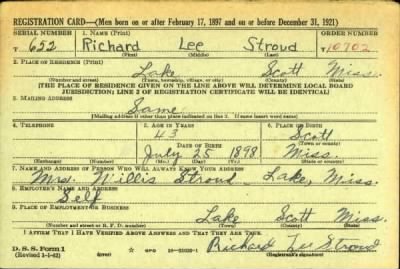 REGISTRATION CARD—(Men born on or after February 17, 1897 and on or before December 31, 1921)
SERIAL NUMBER 1. NAME (Print) ORDER NUMBER
T 652 Richard Lee Stroud T10702
(First) (Middle) (Last)
2. PLACE OF RESIDENCE (Print)
Lake Scott Miss.
(Number and street) (Town, township, village, or city) (County) (State)
[THE PLACE OF RESIDENCE GIVEN ON THE LINE ABOVE WILL DETERMINE LOCAL BOARD
JURISDICTION; LINE 2 OF REGISTRATION CERTIFICATE WILL BE IDENTICAL]
3. MAILING ADDRESS
Same
[Mailing address if other than place indicated on line 2. If same insert word same]
4. TELEPHONE 5. AGE IN YEARS 6. PLACE OF BIRTH
43 Scott
DATE OF BIRTH (Town or county)
July 25 1898 Miss.
(Exchange) (Number) (Mo.) (Day) (Yr.) (State or country)
7. NAME AND ADDRESS OF PERSON WHO WILL ALWAYS KNOW YOUR ADDRESS
Mrs. Willis Stroud Lake, Miss.
8. EMPLOYER'S NAME AND ADDRESS
Self
9. PLACE OF EMPLOYMENT OR BUSINESS
Lake Scott Miss.
(Number and street or R. F. D. number) (Town) (County) (State)
I AFFIRM THAT I HAVE VERIFIED ABOVE ANSWERS AND THAT THEY ARE TRUE.
D. S. S. Form 1
(Revised 1-1-42) (over) GPO Richard Lee Stroud
(Registrant's signature)